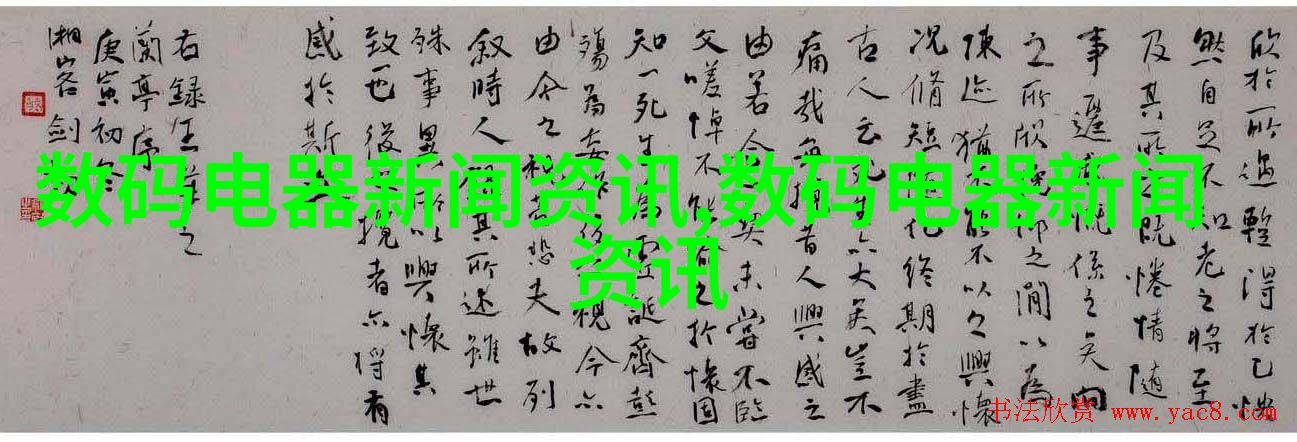 数码电器新闻资讯,数码电器新闻
资讯
欣於所遇暫得於己怏
然自足不知老之將至
及其所之既惓情隨
事遷感慨係之矣向
之所欣俛仰之間以為
陳迹猶不能不以之興懷
況脩短隨化終期於盡
古人云死生亦大矣豈不
痛哉每攬昔人興感之
由若合一契未嘗不臨
文嗟悼不能喻之於懷固
知一死生為虛誕齊彭
殤為妄作後之視今亦
由今之視昔悲夫故列
敘時人錄其所述雖世
殊事異所以興懷其
致一也後之攬者亦將有
感於斯文
右録王羲之
蘭亭序
庚寅初冬
湘客剑
书法欣赏 www.yac8.com